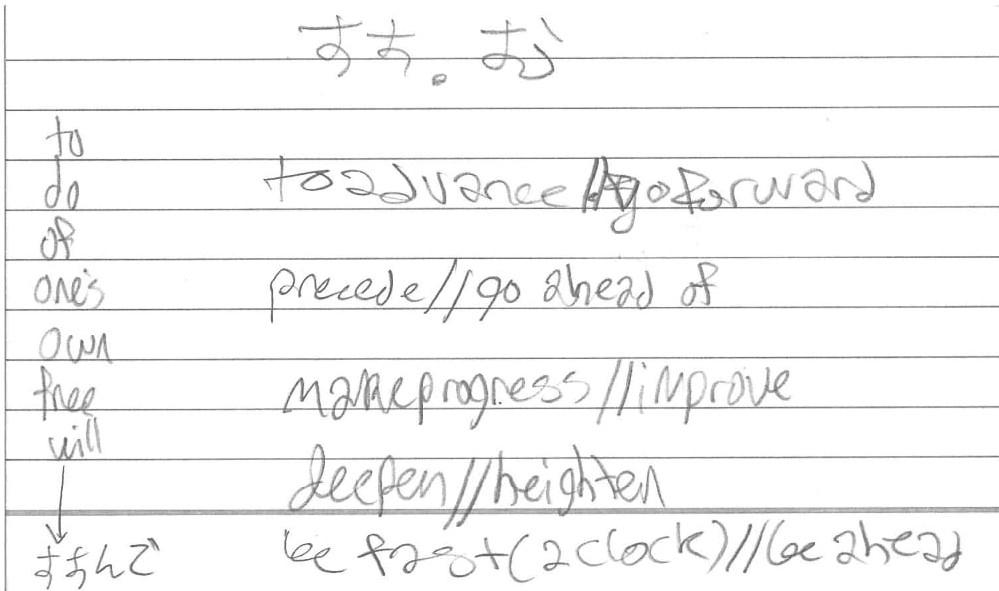 すす.む
to
do
of
one's
own
free
will
すすんで
to advance//go forward
precede//go ahead of
make progress//improve
deepen//heighten
be fast (a clock)//be ahead